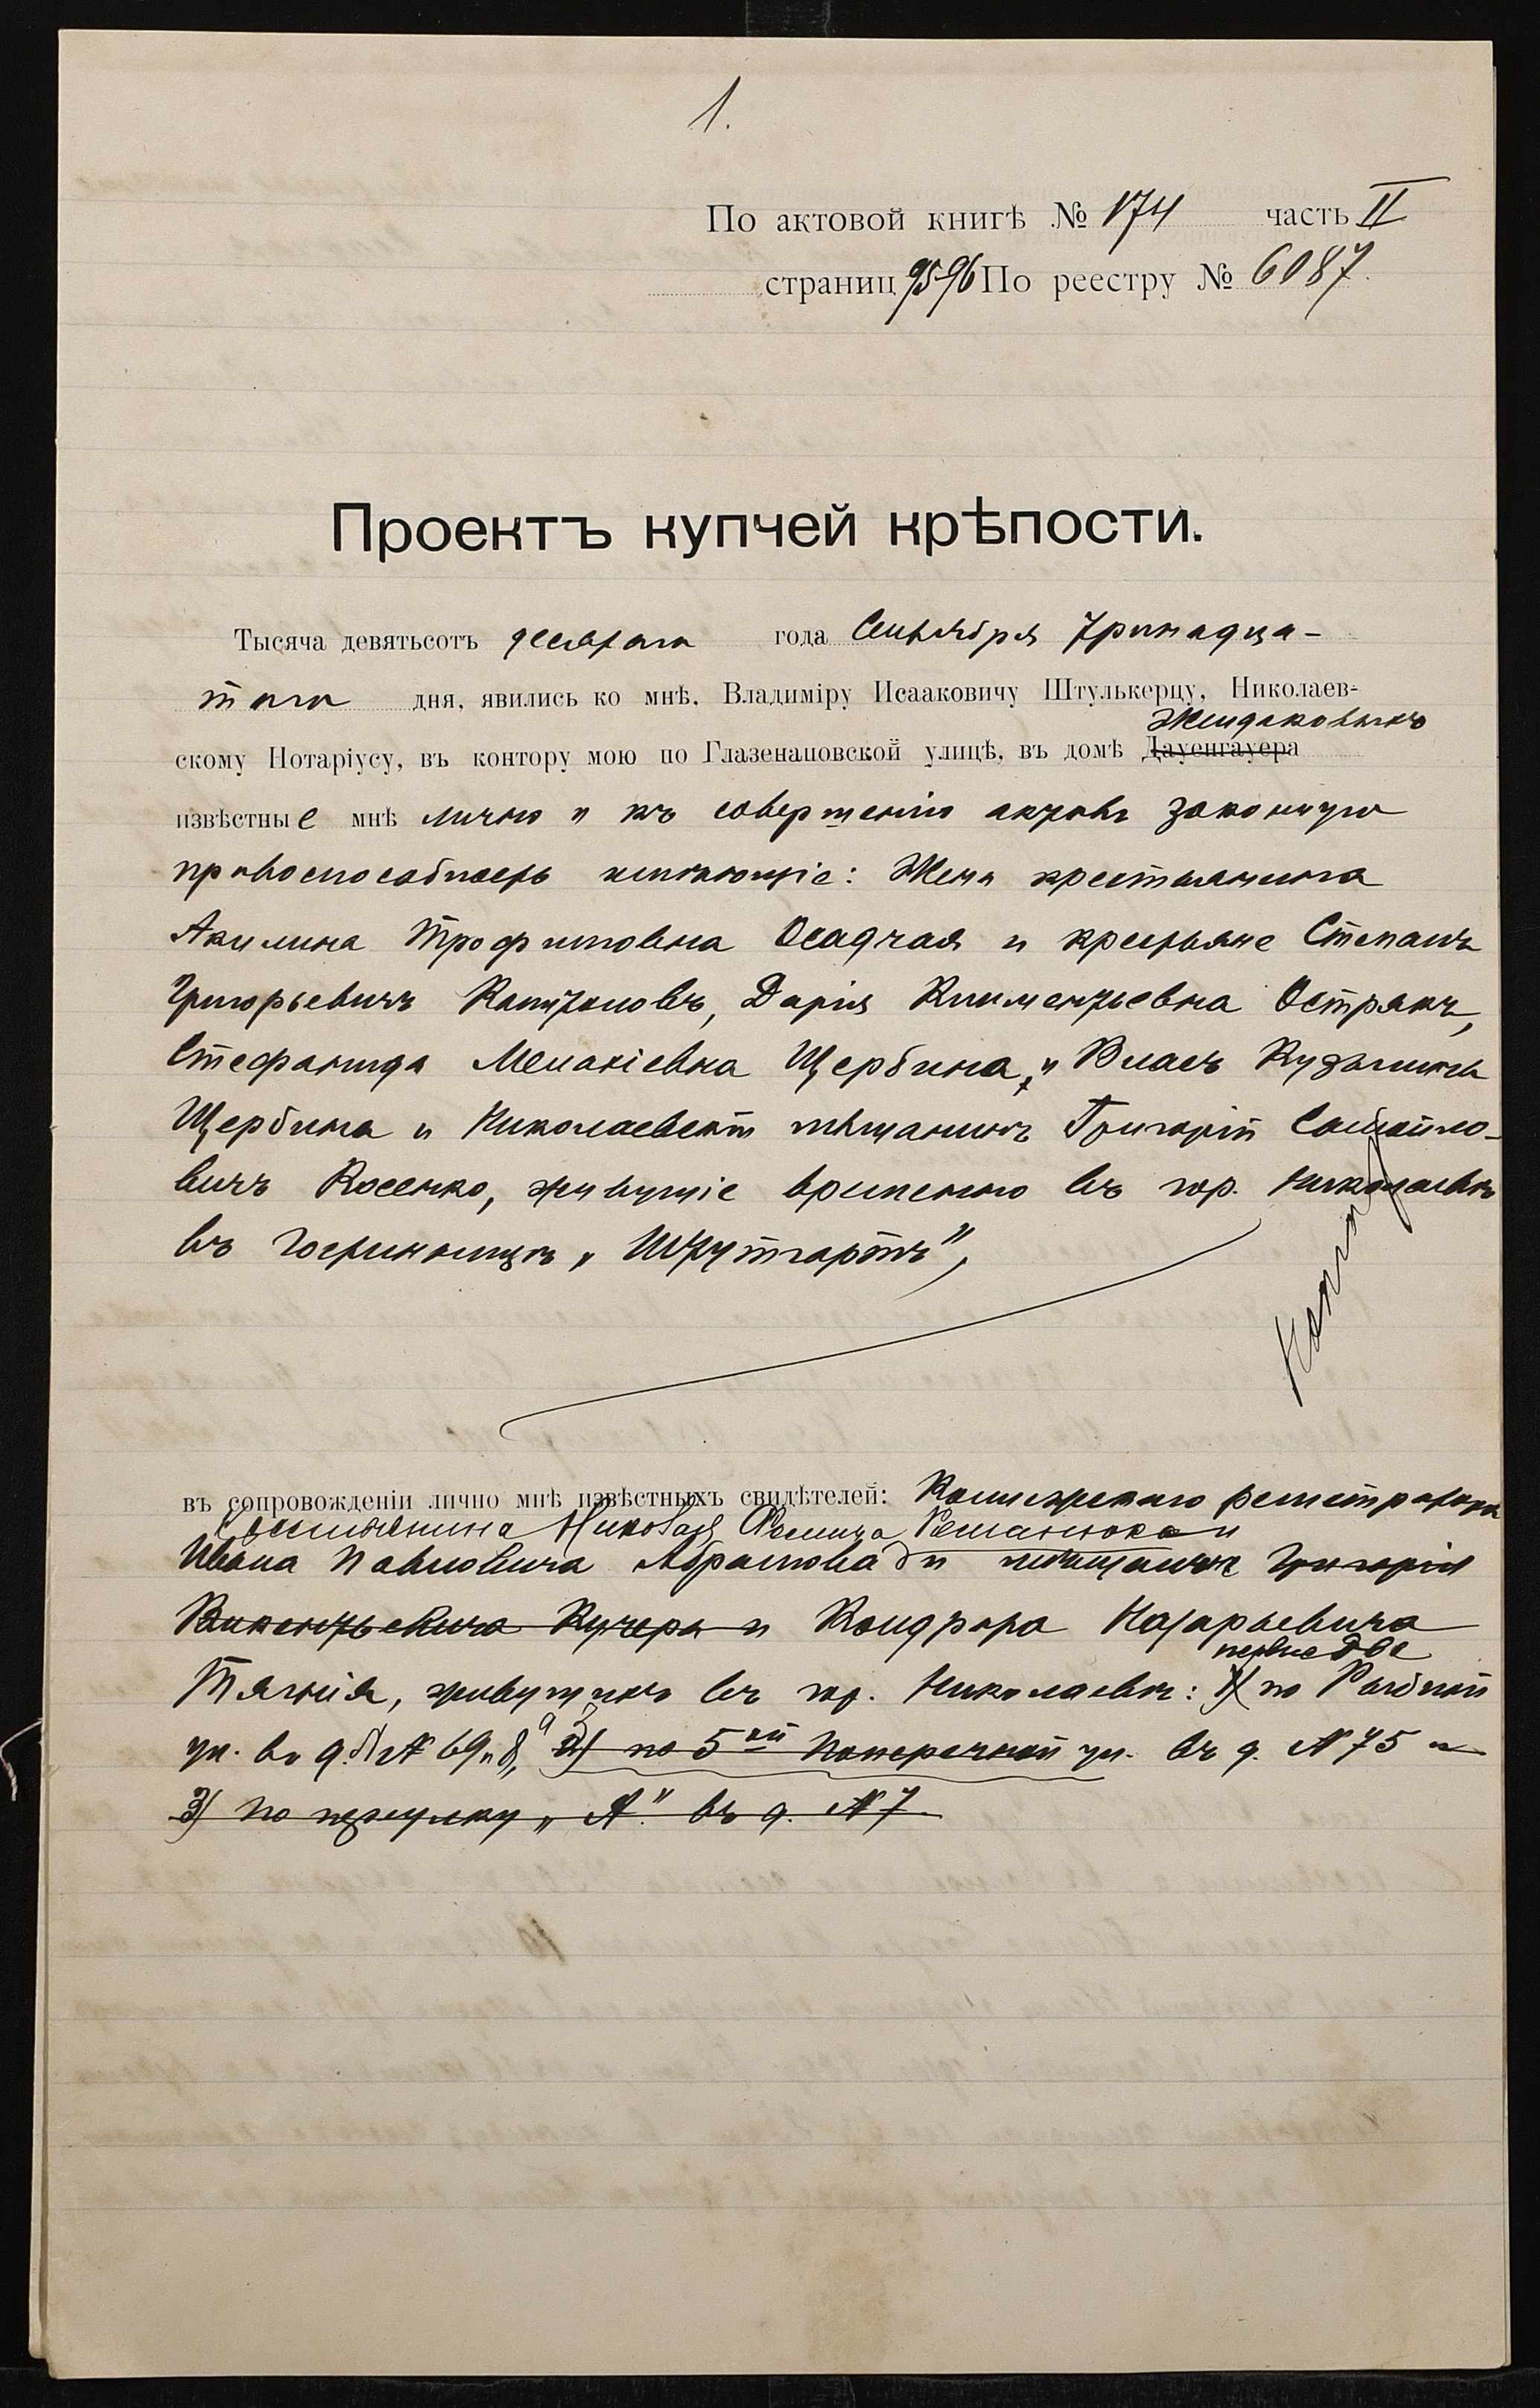 1.
По актовой книгѣ № 174 часть II
страниц 95-96 По реестру № 6087.
Проектъ купчей крѣпости.
Тысяча девятьсотъ десятаго года Сентября тринадца-
таго дня, явились ко мнѣ, Владиміру Исааковичу Штулькерцу, Николаев-
скому Нотаріусу, въ контору мою по Глазенаповской улицѣ, въ домѣ Дауенгауера
извѣстные мнѣ лично и къ совершенію актовъ законную
правоспособность имѣющіе: Жена крестьянина
Акилина Трофимовна Осадчая и крестьяне Степанъ
Григорьевичъ Капитоновъ, Дарія Климентьевна Острякъ,
Стефанида Меланіевна Щербина, и Власъ Кузьминъ
Щербина и Николаевскій мѣщанинъ Григорій Самойло-
вичъ Косенко, живущіе временно въ гор. Николаевѣ
въ гостинницѣ „Штутгартъ",
въ сопровожденіи лично мнѣ извѣстныхъ свидѣтелей: Коллежскаго регистратора
Николая
Ивана Павловича Абрамова и мѣщанъ Григорія
Викентьевича Кучера и Кондрата Назарьевича
первые две
Тягнія, живущихъ въ гор. Николаевѣ: 1) по Рыбной
ул. въ д. № 69, 2) по 5ой Поперечной ул. въ д. № 75 и
3) по переулку „А." въ д. № 7.